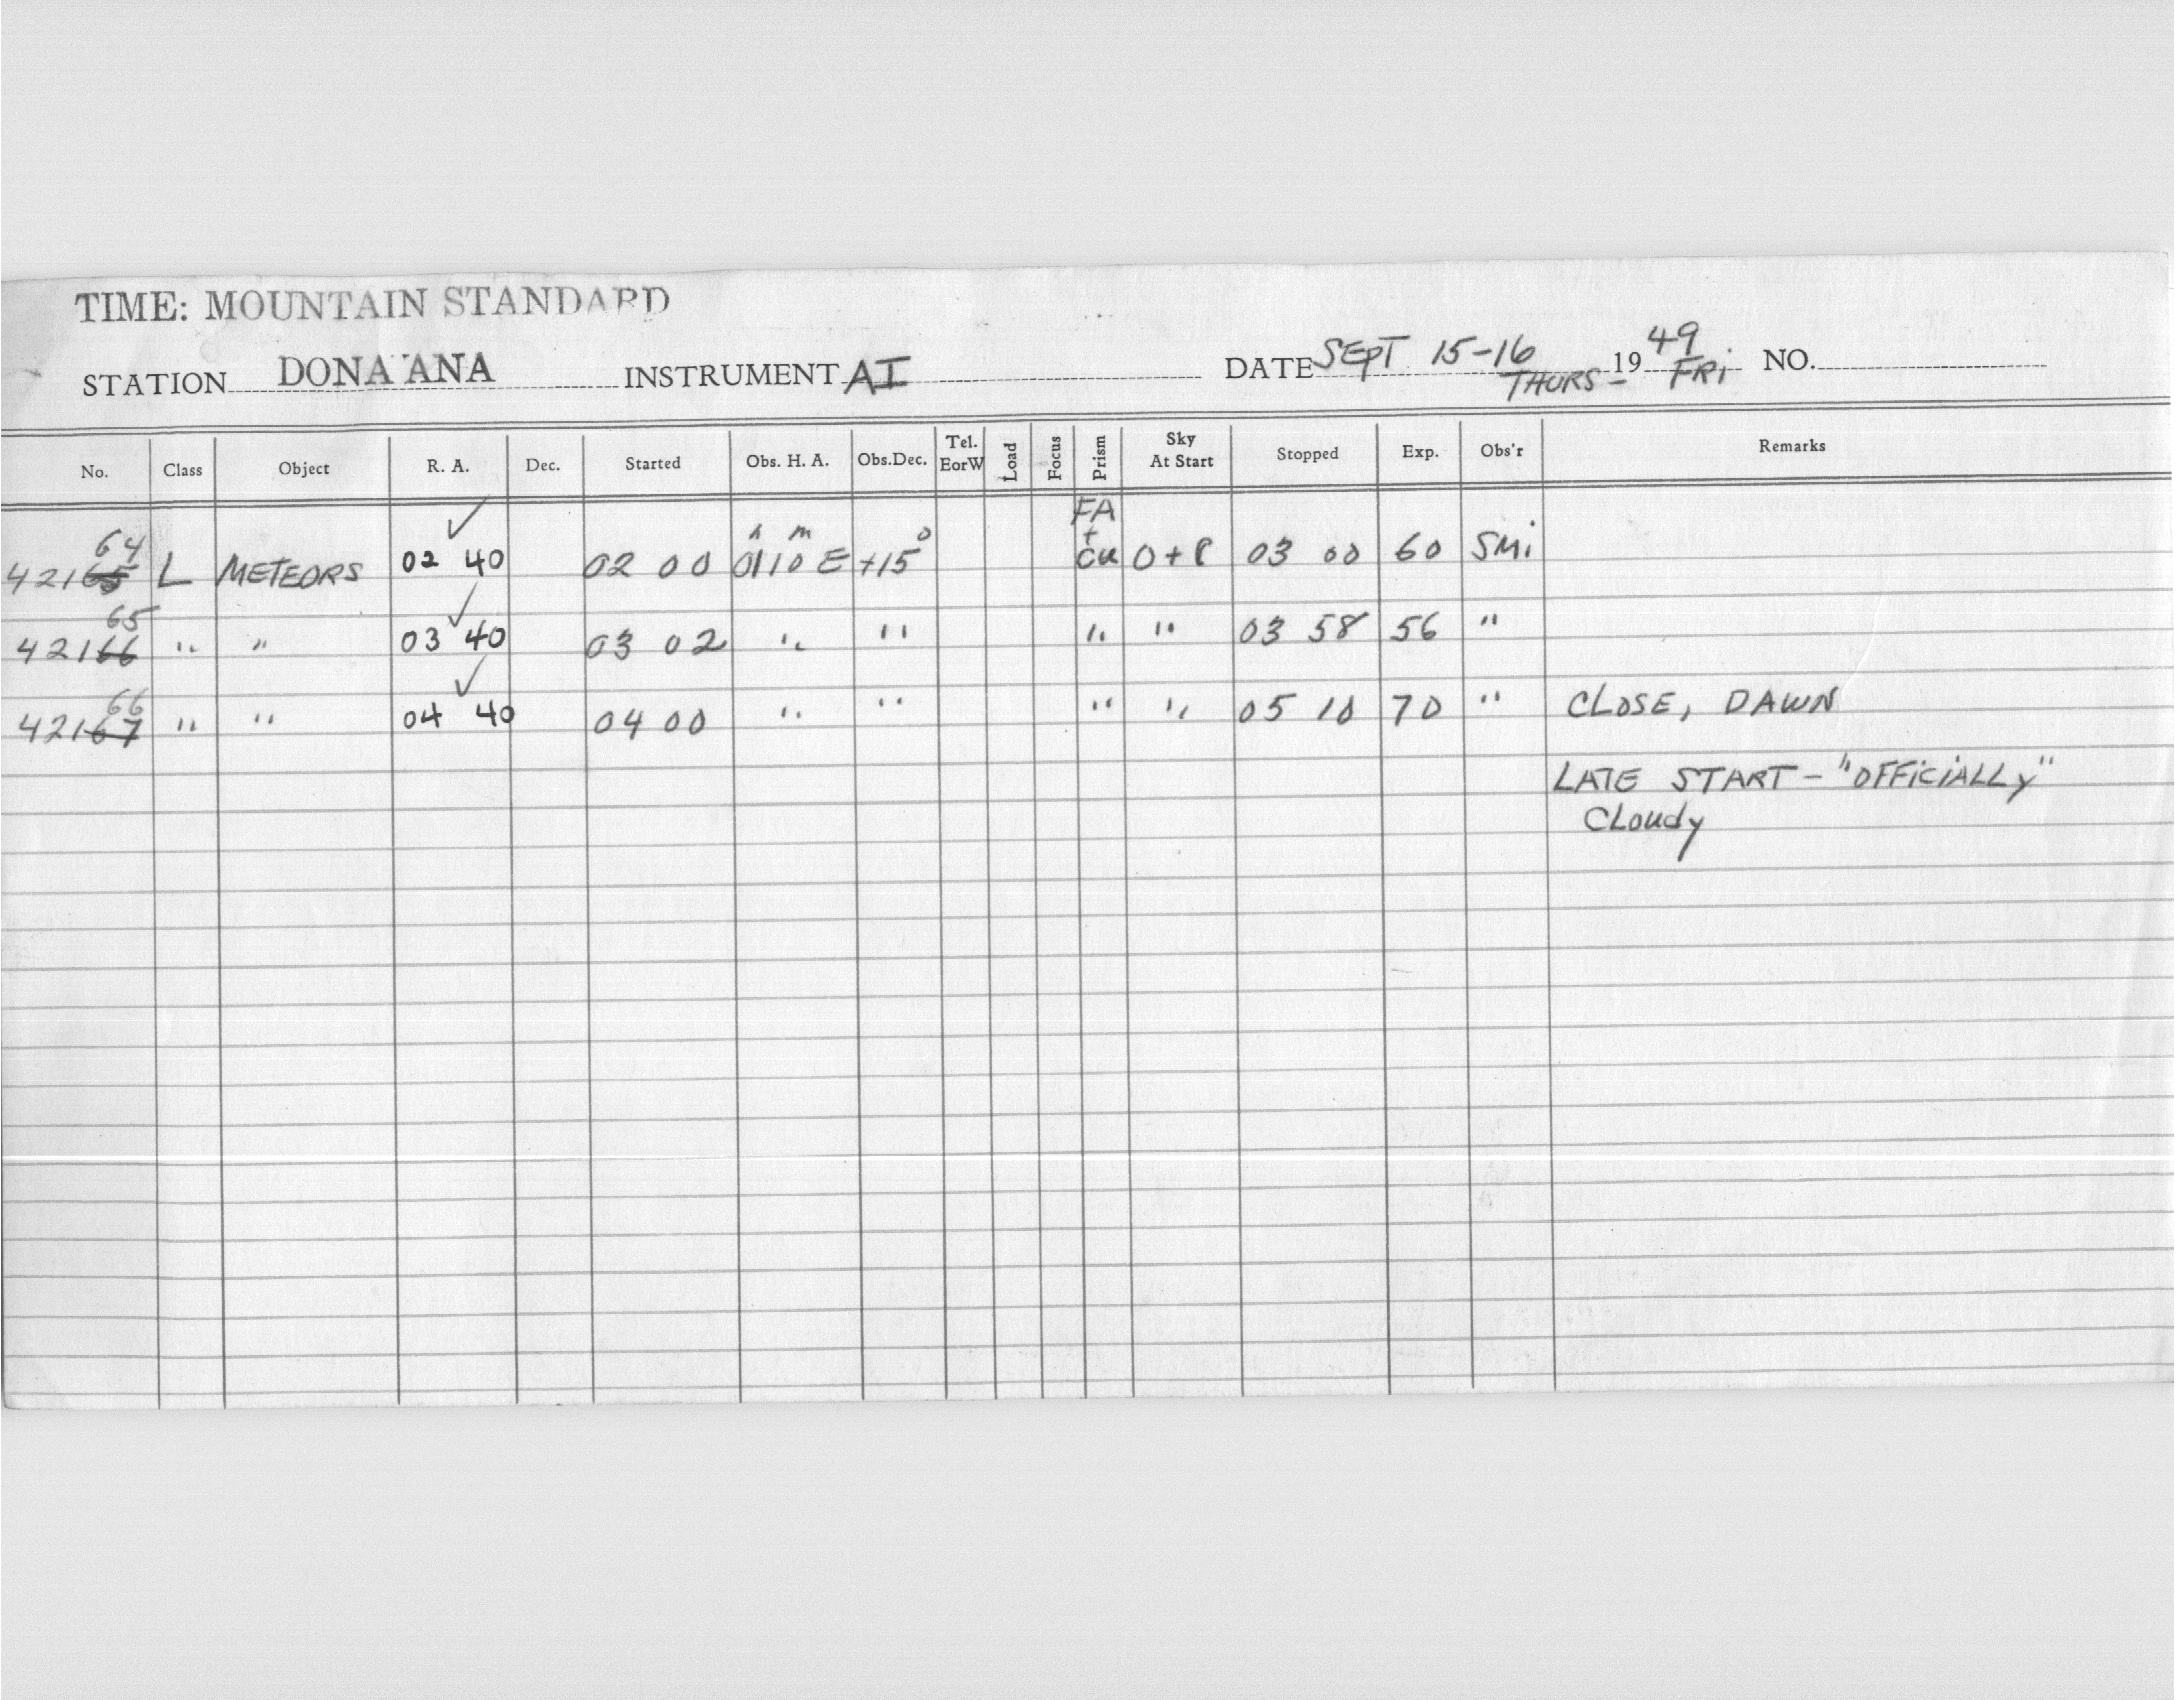 TIME: MOUNTAIN STANDARD
STATION DONA ANA INSTRUMENT AI DATE SEPT 15-16 1949 NO.
THURS - FRi
No. Class Object R. A. Dec. Started Obs. H. A. Obs.Dec. Tel. EorW Load Focus Prism Sky At Start Stopped Exp. Obs'r Remarks
FA
64 h m o +
42165 L METEORS 02 40 02 00 0110 E +15 cu 03 00 60 SMi
65
42166 " " 03 40 03 02 " " " " 03 58 56 "
66
42167 " " 04 40 04 00 " " " " 05 10 70 " CLOSE, DAWN
LATE START - "OFFiCiALLy"
CLoudy